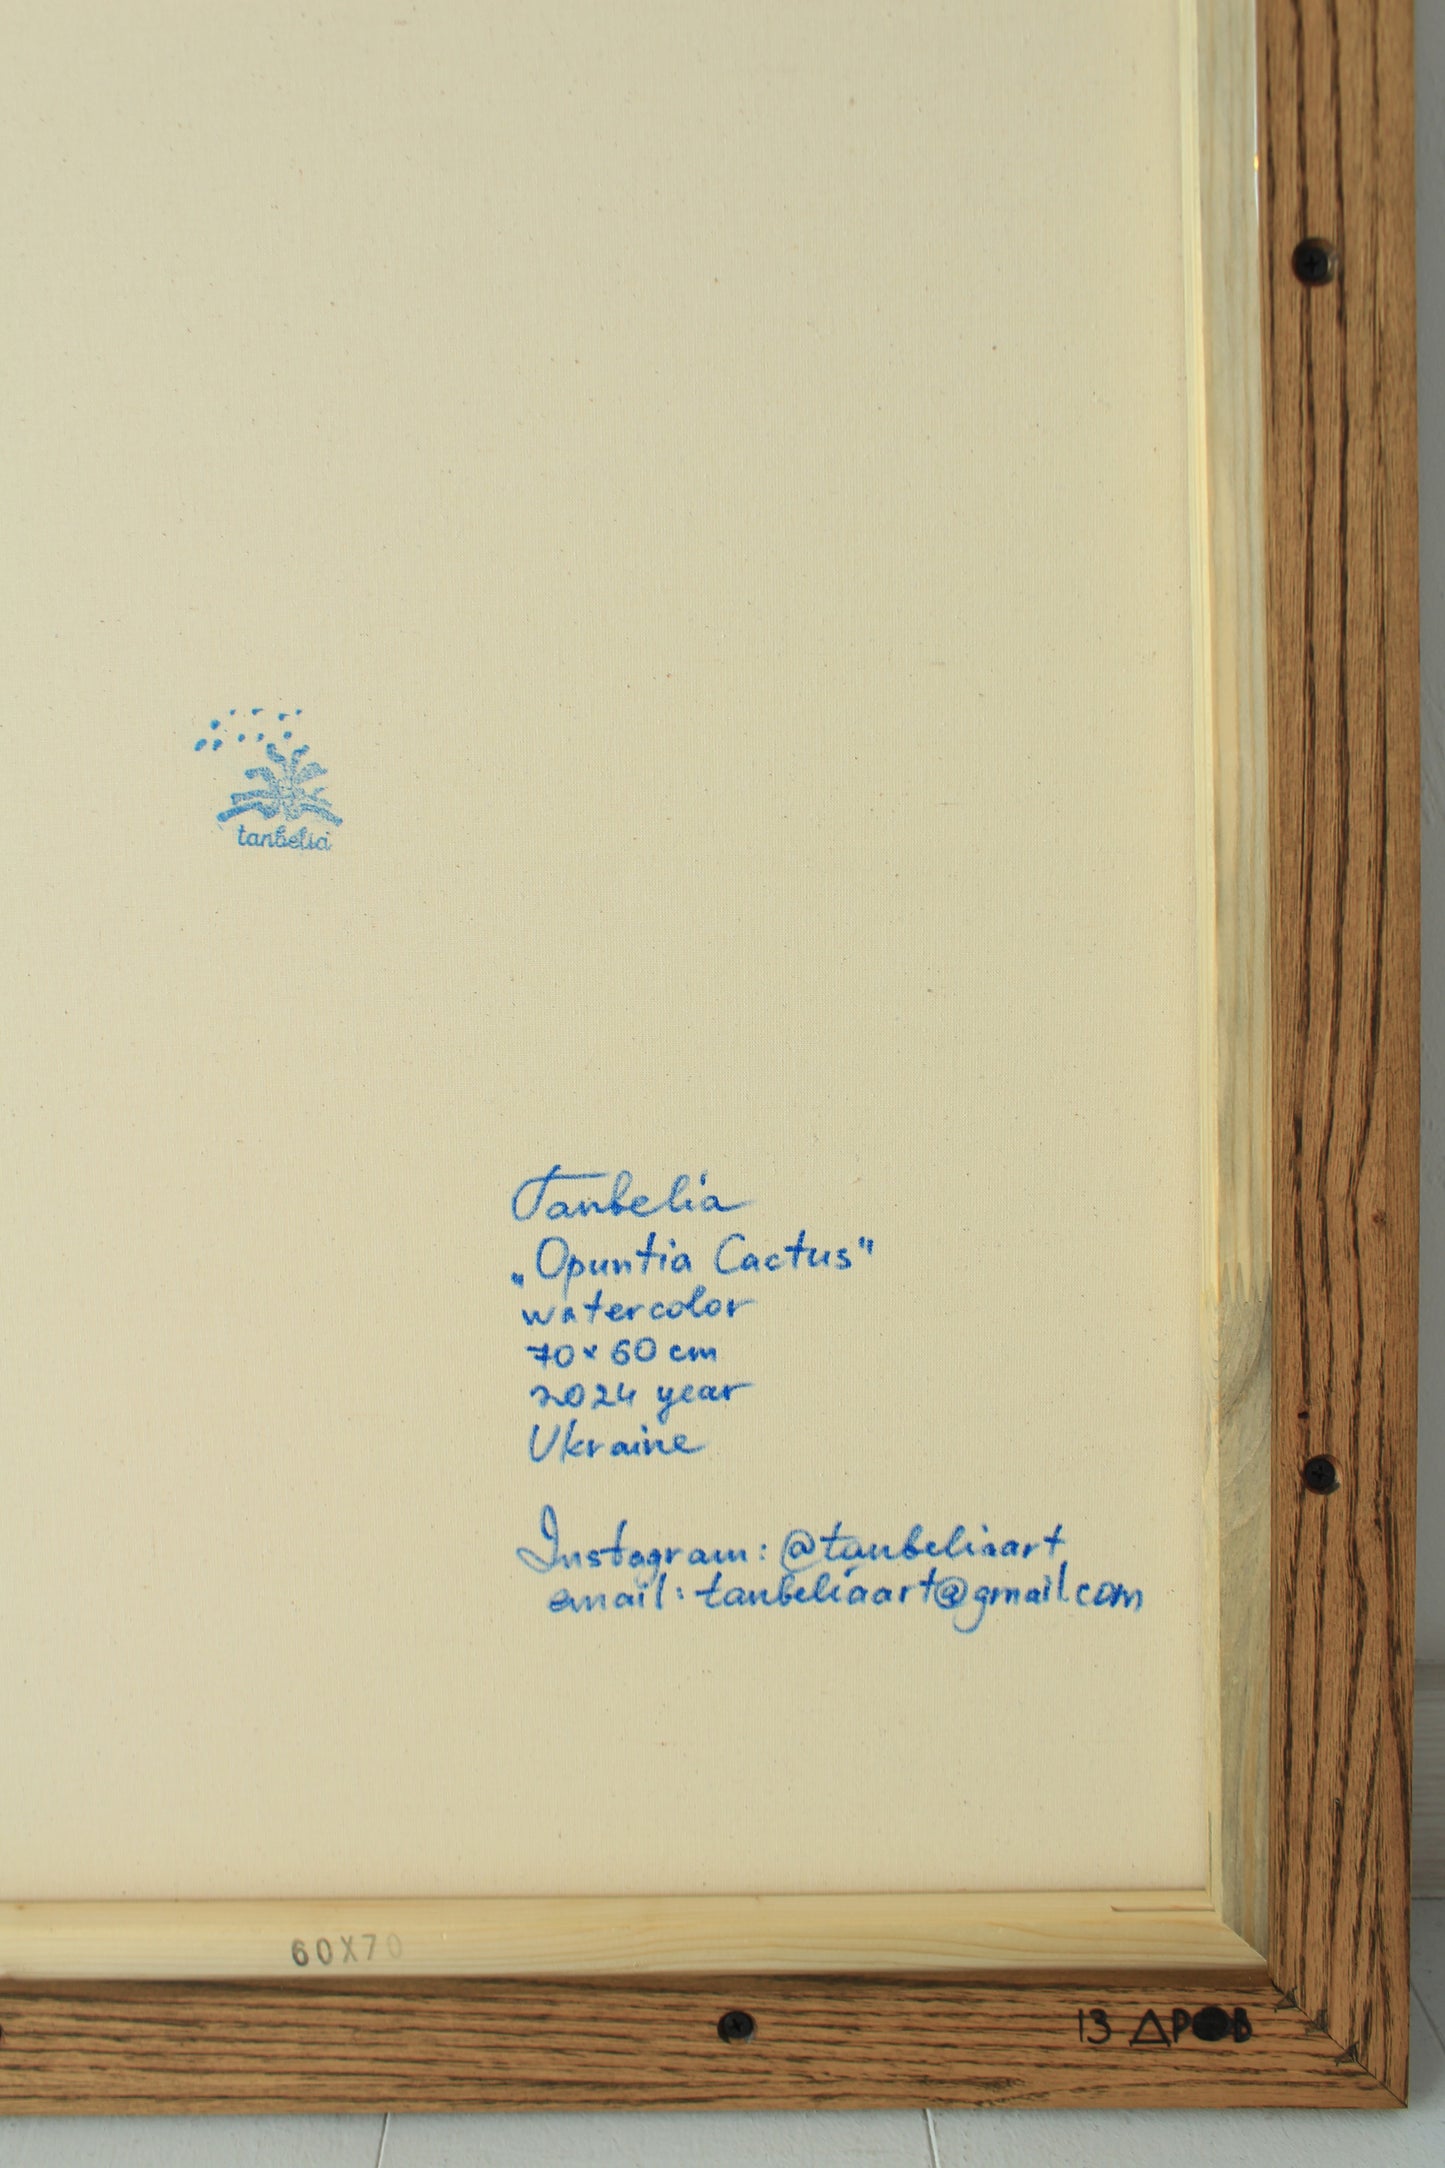 tanbelia
Tanbelia
„Opuntia Cactus"
watercolor
70×60 cm
2024 year
Ukraine
Instagram: @tanbeliaart
email: tanbeliaart@gmail.com
60X70
ІЗ ДРОВ